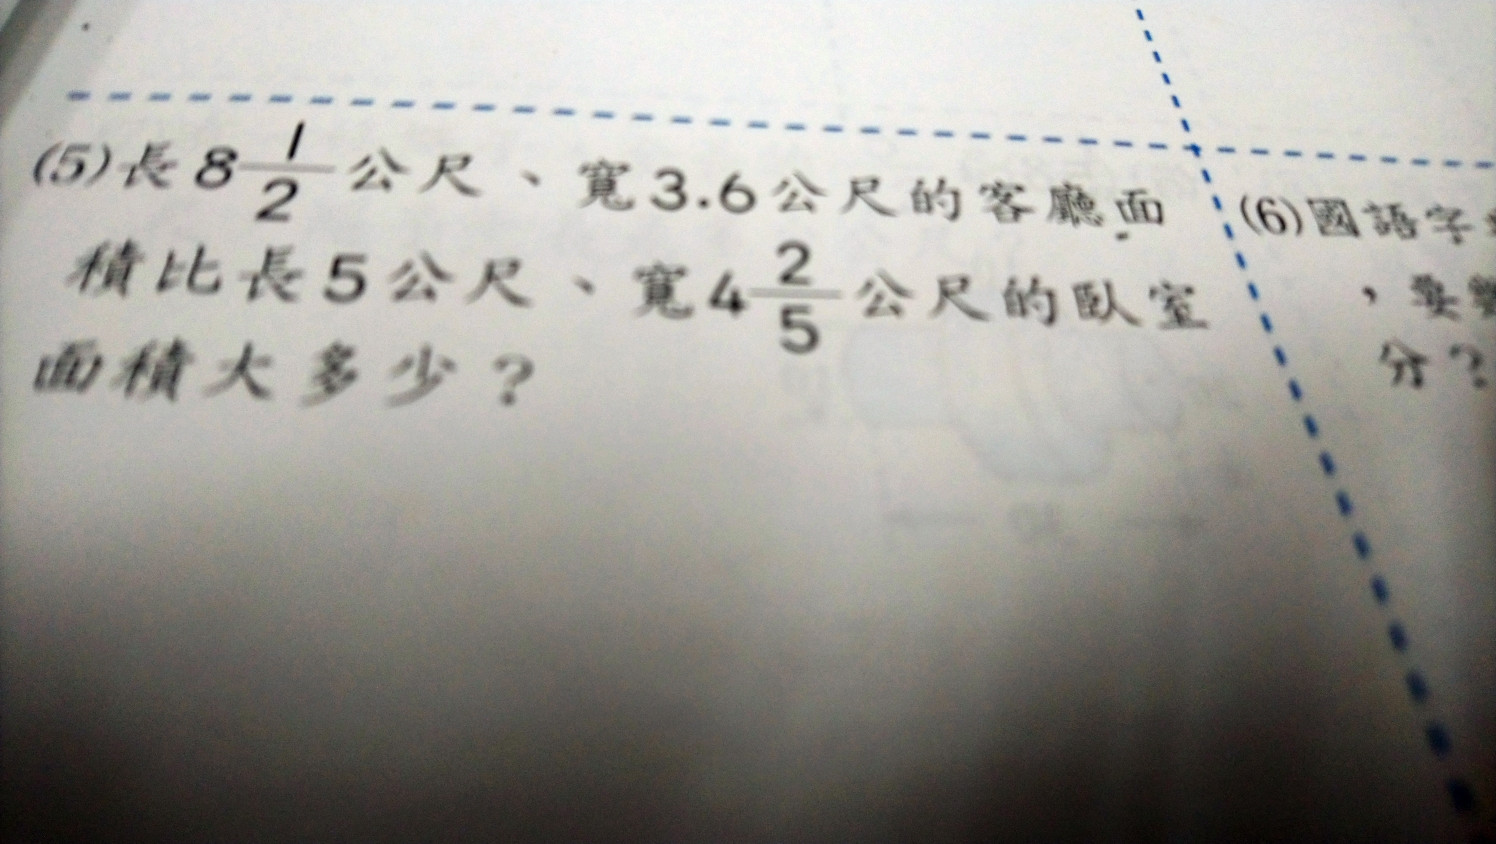 (5)長8 1/2 公尺、寬3.6公尺的客廳面
積比長5公尺、寬4 2/5 公尺的臥室
面積大多少?
(6)國語字
,要
分?